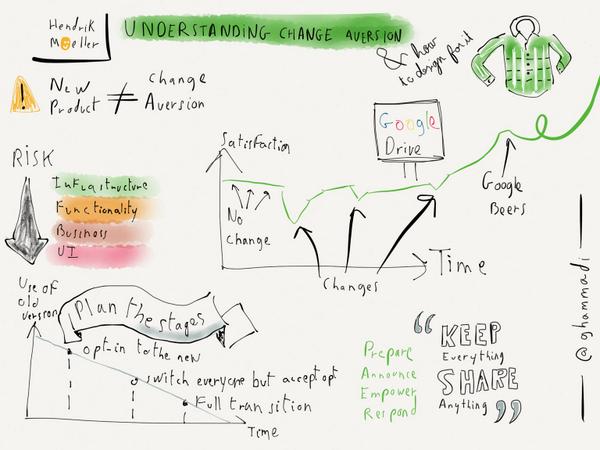 Hendrik
Moeller
UNDERSTANDING CHANGE AVERSION
& how
to design for it
! New
Product
≠
change
Aversion
RISK
Infrastructure
Functionality
Business
UI
Satisfaction
No
change
Changes
Time
Google
Drive
Google
Beers
Use of
old
version
Plan the stages
opt-in to the new
switch everyone but accept opt
Full transition
Time
Prepare
Announce
Empower
Respond
“KEEP
Everything
SHARE
Anything”
@ghammadi